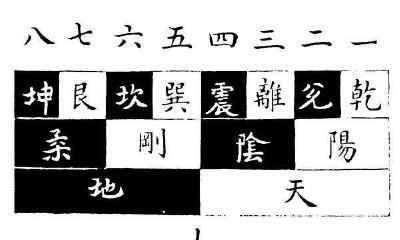 一 二 三 四 五 六 七 八
乾 兊 離 震 巽 坎 艮 坤
陽 陰 剛 柔
天 地